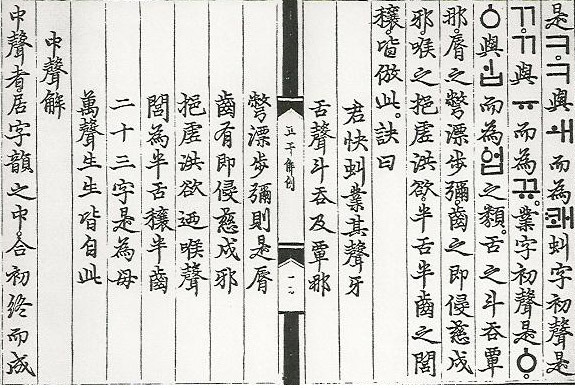 是ㅋ。ㅋ與ㅙ而為쾌。虯字初聲是
ㄲ。ㄲ與ㅠ而為뀨。業字初聲是ㆁ。
ㆁ與ᅟᅥᆸ而為ᅌᅥᆸ之類。舌之斗呑覃
那。脣之彆漂步彌。齒之即侵慈戌
邪。喉之挹虛洪欲。半舌半齒之閭
穰。皆倣此。訣曰
君快虯業其聲牙
舌聲斗呑及覃那
正音解例
彆漂步彌則是脣
齒有即侵慈戌邪
挹虛洪欲迺喉聲
閭為半舌穰半齒
二十三字是為母
萬聲生生皆自此
中聲解
中聲者。居字韻之中。合初終而成